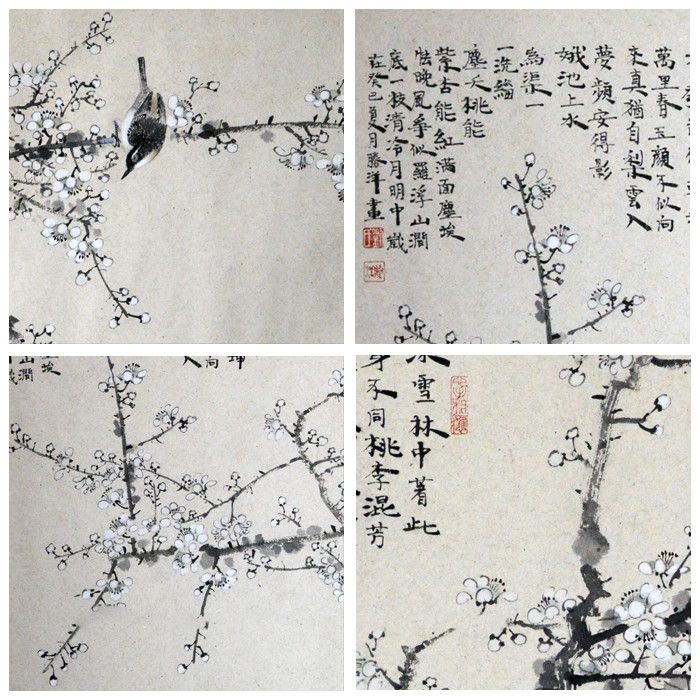 萬里春玉顏不似向
來真猶自梨雲入
夢頻安得影
娥池上水
為渠一
一洗緇
塵夭桃能
紫杏能紅滿面塵埃
怯晚風爭似羅浮山澗
底一枝清冷月明中歲
在癸巳夏月勝洋畫
坤
向
埃
山澗
雪林中著此
不同桃李混芳